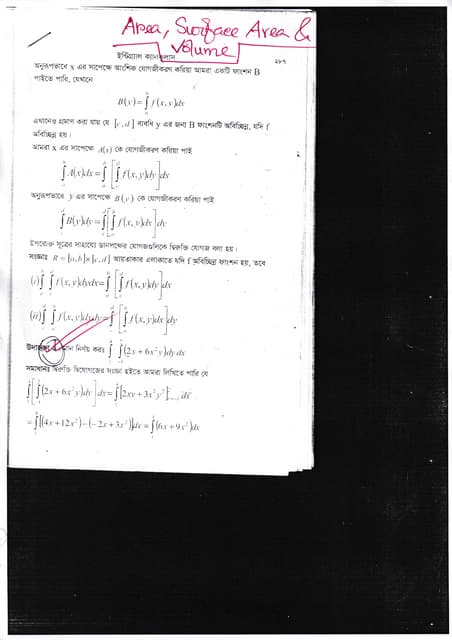 Area, Surface Area &
Volume
ইন্টিগ্র্যাল ২৮৭
অনুরূপভাবে x এর সাপেক্ষে আংশিক যোগজীকরণ করিয়া আমরা একটি ফাংশন B
পাইতে পারি, যেখানে
B(y)=∫f(x, y)dx
এখানেও প্রমাণ করা যায় যে [c, d] ব্যবধি y এর জন্য B ফাংশনটি অবিচ্ছিন্ন, যদি f
অবিচ্ছিন্ন হয়।
আমরা x এর সাপেক্ষে A(x) কে যোগজীকরণ করিয়া পাই
∫A(x)dx=∫[∫f(x, y)dy]dx
অনুরূপভাবে y এর সাপেক্ষে B(y) কে যোগজীকরণ করিয়া পাই
∫B(y)dy=∫[∫f(x, y)dx]dy
উপরোক্ত সূত্রের সাহায্যে ডানপক্ষের যোগজগুলিকে দ্বিরুক্তি যোগজ বলা হয়।
সংজ্ঞাঃ R = [a,b]×[c,d] আয়তাকার এলাকাতে যদি f অবিচ্ছিন্ন ফাংশন হয়, তবে
(i)∫∫f(x, y)dydx=∫[∫f(x, y)dy]dx
(ii)∫∫f(x, y)dxdy=∫[∫f(x, y)dx]dy
মান নির্ণয় করঃ ∫∫(2x + 6x²y)dy dx
সমাধানঃ দ্বিরুক্তি দ্বিযোগজের সংজ্ঞা হইতে আমরা লিখিতে পারি যে
∫[∫(2x+6x²y)dy]dx=∫[2xy+3x²y²] dx
=∫[(4x+12x²)−(−2x+3x²)]dx=∫(6x+9x²)dx